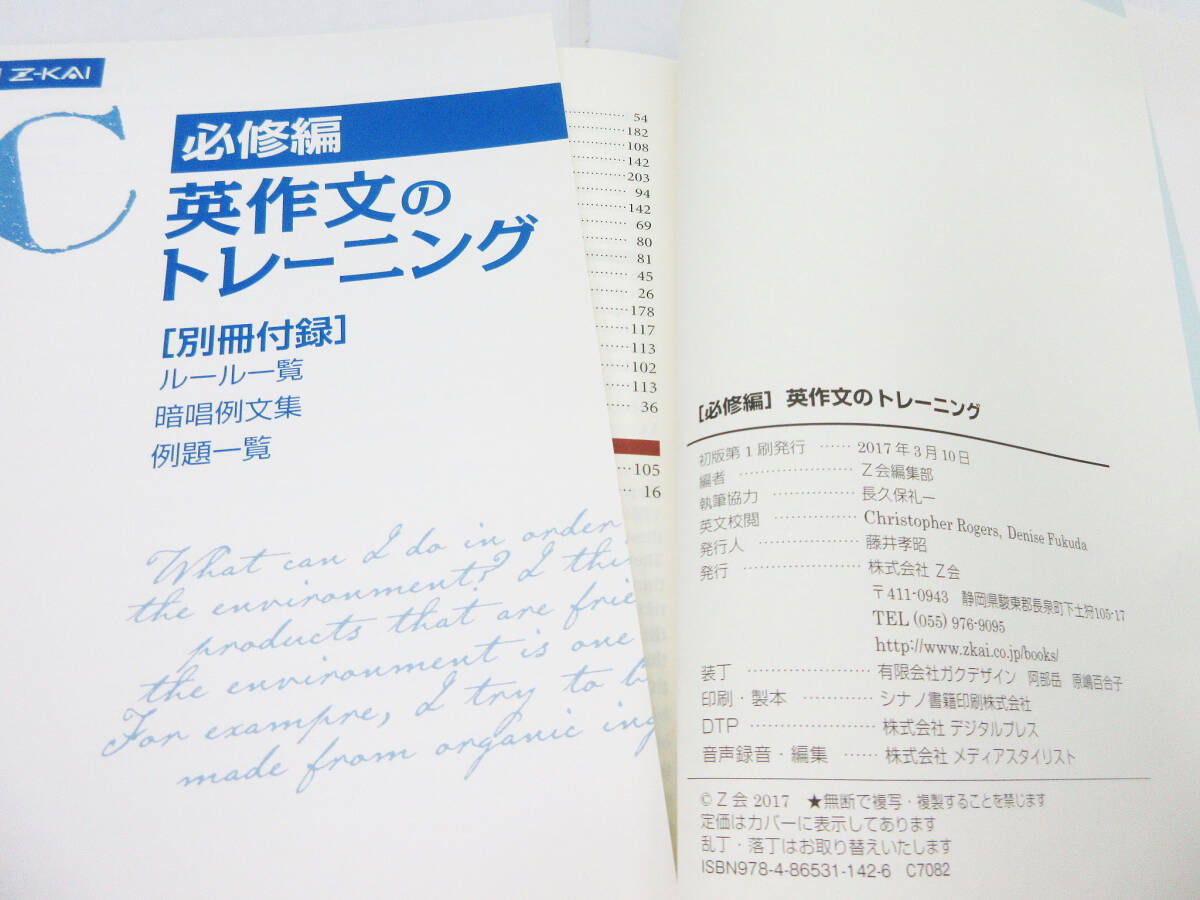 Z-KAI
C
必修編
英作文の
トレーニング
[別冊付録]
ルール一覧
暗唱例文集
例題一覧
What can I do in order
the environment? I thi
products that are frie
the environment is one
For exampre, I try to b
made from organic ing
54
182
108
142
203
94
142
69
80
81
45
26
178
117
113
102
113
36
105
16
[必修編] 英作文のトレーニング
初版第1刷発行 …… 2017年3月10日
編者 ………………… Z会編集部
執筆協力 …………… 長久保礼一
英文校閲 …………… Christopher Rogers, Denise Fukuda
発行人 ……………… 藤井孝昭
発行 ………………… 株式会社 Z会
〒411-0943 静岡県駿東郡長泉町下土狩105-17
TEL (055) 976-9095
http://www.zkai.co.jp/books/
装丁 ………………… 有限会社ガクデザイン 阿部岳 原嶋百合子
印刷・製本 ………… シナノ書籍印刷株式会社
DTP ………………… 株式会社 デジタルプレス
音声録音・編集 …… 株式会社 メディアスタイリスト
© Z会 2017 ★無断で複写・複製することを禁じます
定価はカバーに表示してあります
乱丁・落丁はお取り替えいたします
ISBN978-4-86531-142-6 C7082